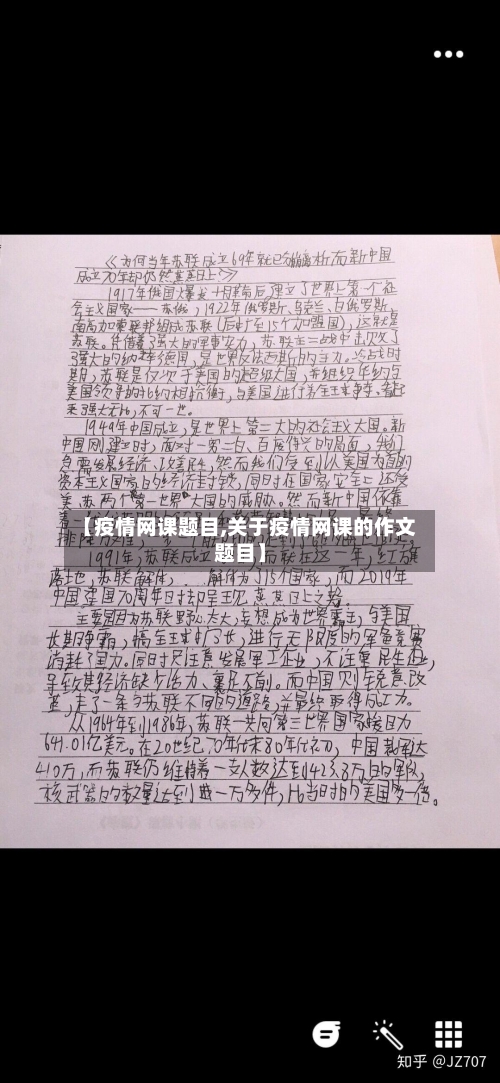 《为何当年苏联成立69年就已分崩离析,而新中国
成立70年却仍然蒸蒸日上?》
1917年俄国爆发十月革命后,建立了世界上第一个社
会主义国家——苏俄,1922年俄罗斯、乌克兰、白俄罗斯、
南高加索联邦组成苏联(后扩至15个加盟国),这就是
苏联。凭借着强大的军事实力,苏联在二战中击败了
强大的纳粹德国,是世界反法西斯的主力。冷战时
期,苏联是仅次于美国的超级大国,并组织华约与
美国领导的北约相抗衡,与美国进行着全球争夺,看起
来强大无比,不可一世。
1949年中国成立,是世界上第二大的社会主义大国。新
中国刚建立时,面对一穷二白、百废待兴的局面,我们
急需发展经济、改善民生,然而我们受到以美国为首的
资本主义国家的经济封锁,同时在国家安全上还受
美、苏两个世界大国的威胁。然而新中国依靠
【疫情网课题目,关于疫情网课的作文
题目】
1991年,苏联成立 而就在这一年,红旗
落地,苏联解体, 解体为了15个国家,而2019年
中国建国70周年日时却呈现蒸蒸日上之势。
主要因为苏联野心太大,妄想成为世界霸主,与美国
长期争霸,搞全球扩张,进行无限度的军备竞赛
消耗了国力。同时只注意发展军工企业,不注重民生企业,
导致其经济缺少活力、裹足不前。而中国则锐意改
革,走了一条与苏联不同的道路,并最终取得成功。
从1964年到1986年,苏联一共向第三世界国家援助
641.01亿美元。在20世纪70年代末80年代初,中国裁军达
410万,而苏联仍维持着一支人数达到423.3万的军队,
核武器的数量达到 一万多件,比当时的美国多一倍。
知乎 @JZ707